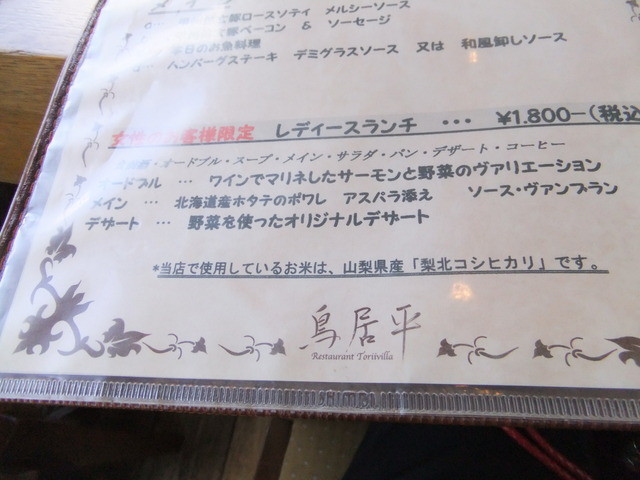 豚ロースソテイ メルシーソース
豚ベーコン & ソーセージ
本日のお魚料理
ハンバーグステーキ デミグラスソース 又は 和風卸しソース
女性のお客様限定 レディースランチ ・・・ ¥1.800-(税込
・オードブル・スープ・メイン・サラダ・パン・デザート・コーヒー
オードブル … ワインでマリネしたサーモンと野菜のヴァリエーション
メイン … 北海道産ホタテのポワレ アスパラ添え ソース・ヴァンブラン
デザート … 野菜を使ったオリジナルデザート
*当店で使用しているお米は、山梨県産「梨北コシヒカリ」です。
鳥居平
Restaurant Toriivilla